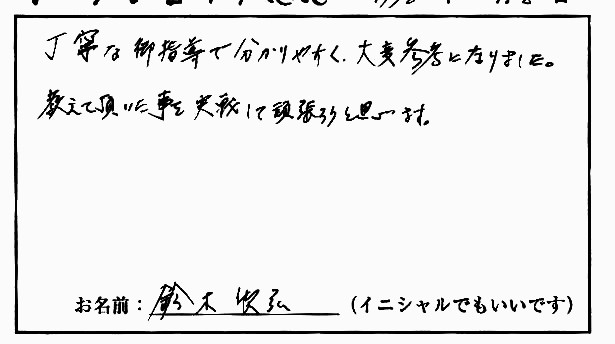 丁寧な御指導で分かりやすく、大変参考になりました。
教えて頂いた事を実戦して頑張ろうと思います。
お名前：鈴木 弘 （イニシャルでもいいです）